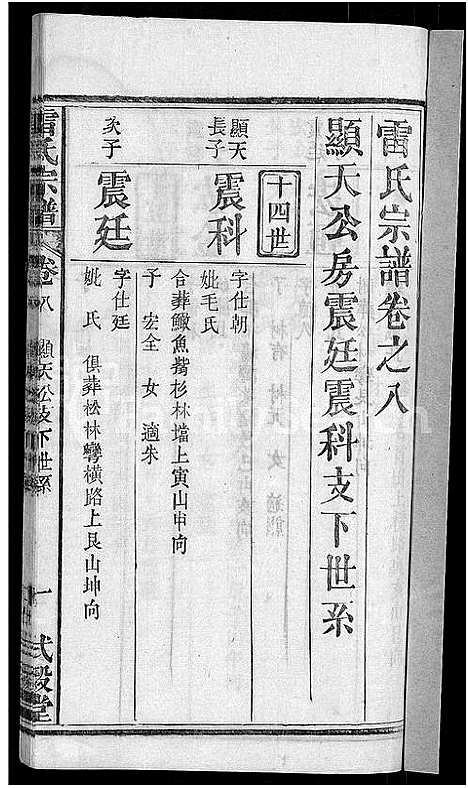 雷氏宗譜卷之八
顯天公房震廷震科支下世系
十四世
顯天長子
震科
字仕朝
妣毛氏
合葬鱖魚觜杉林壋上寅山申向
子 宏全 女 適朱
次子
震廷
字仕廷
妣 氏 俱葬松林彎橫路上艮山坤向
雷氏宗譜
卷八
顯天公支下世系
一
式穀堂